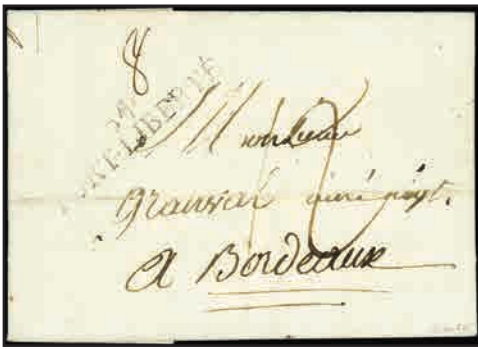 8
PORT-LIBERTÉ
Monsieur
Granval ainé négt.
A Bordeaux